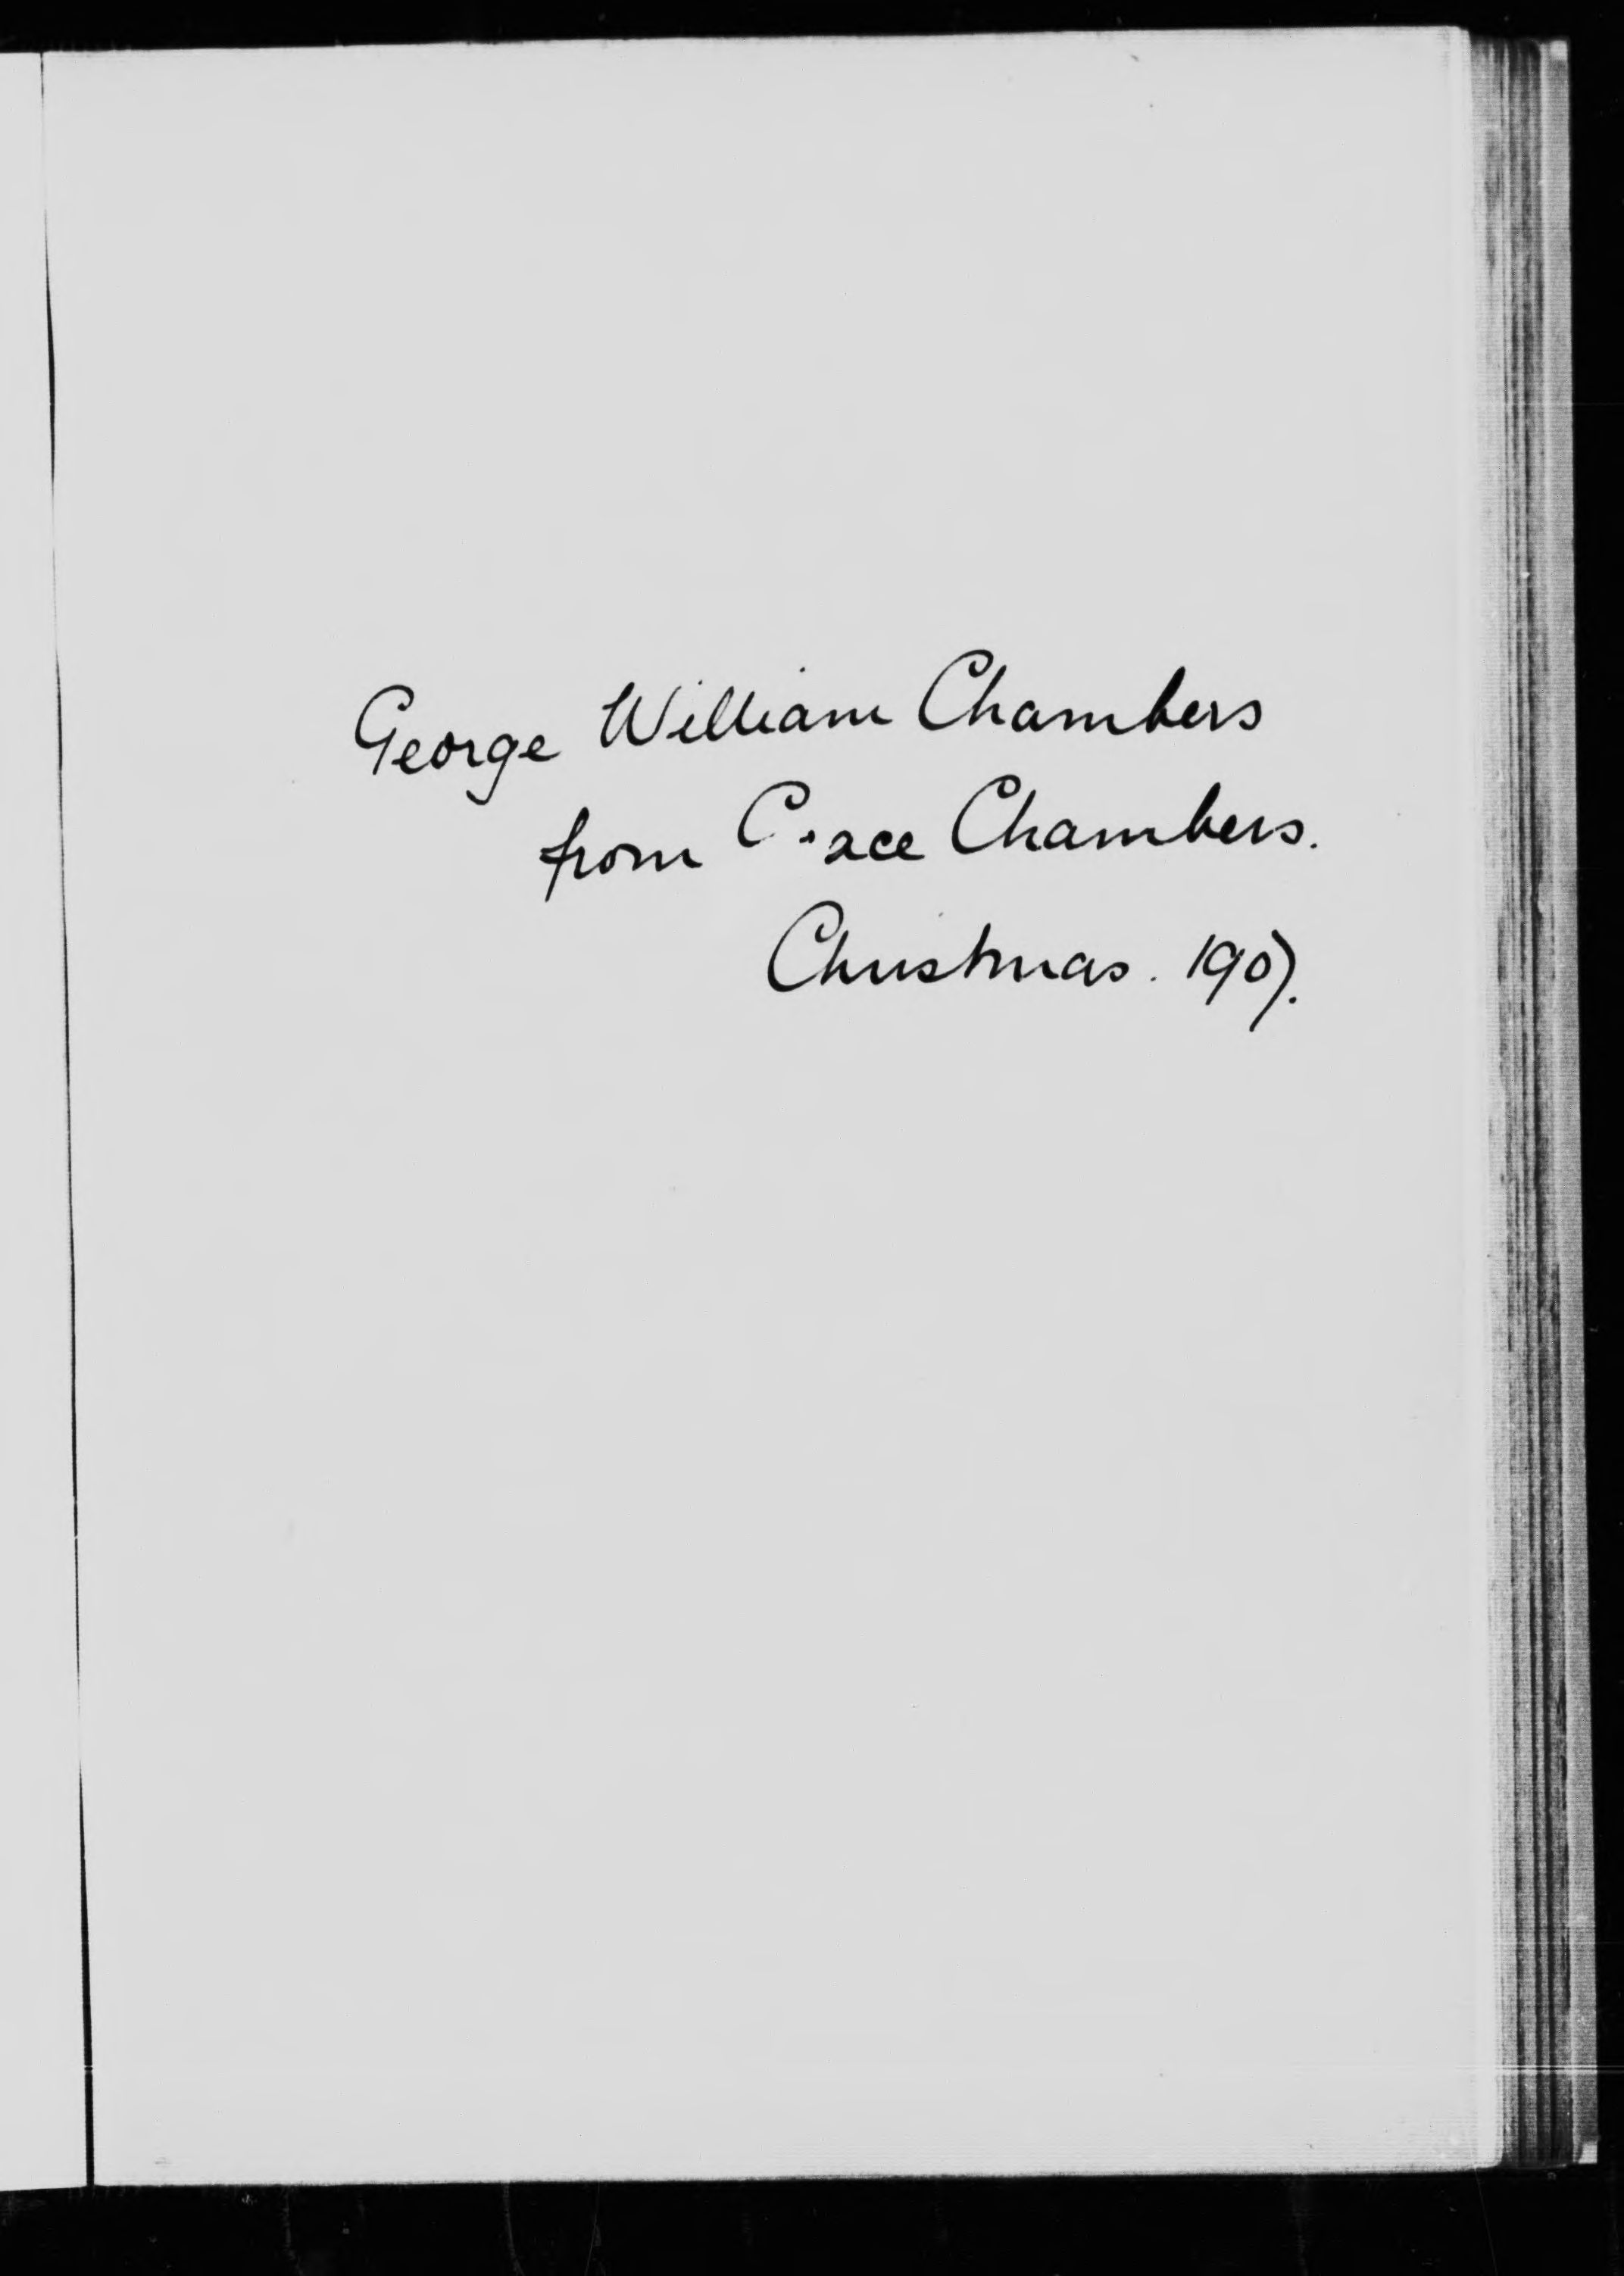 George William Chambers
from Grace Chambers.
Christmas. 1907.